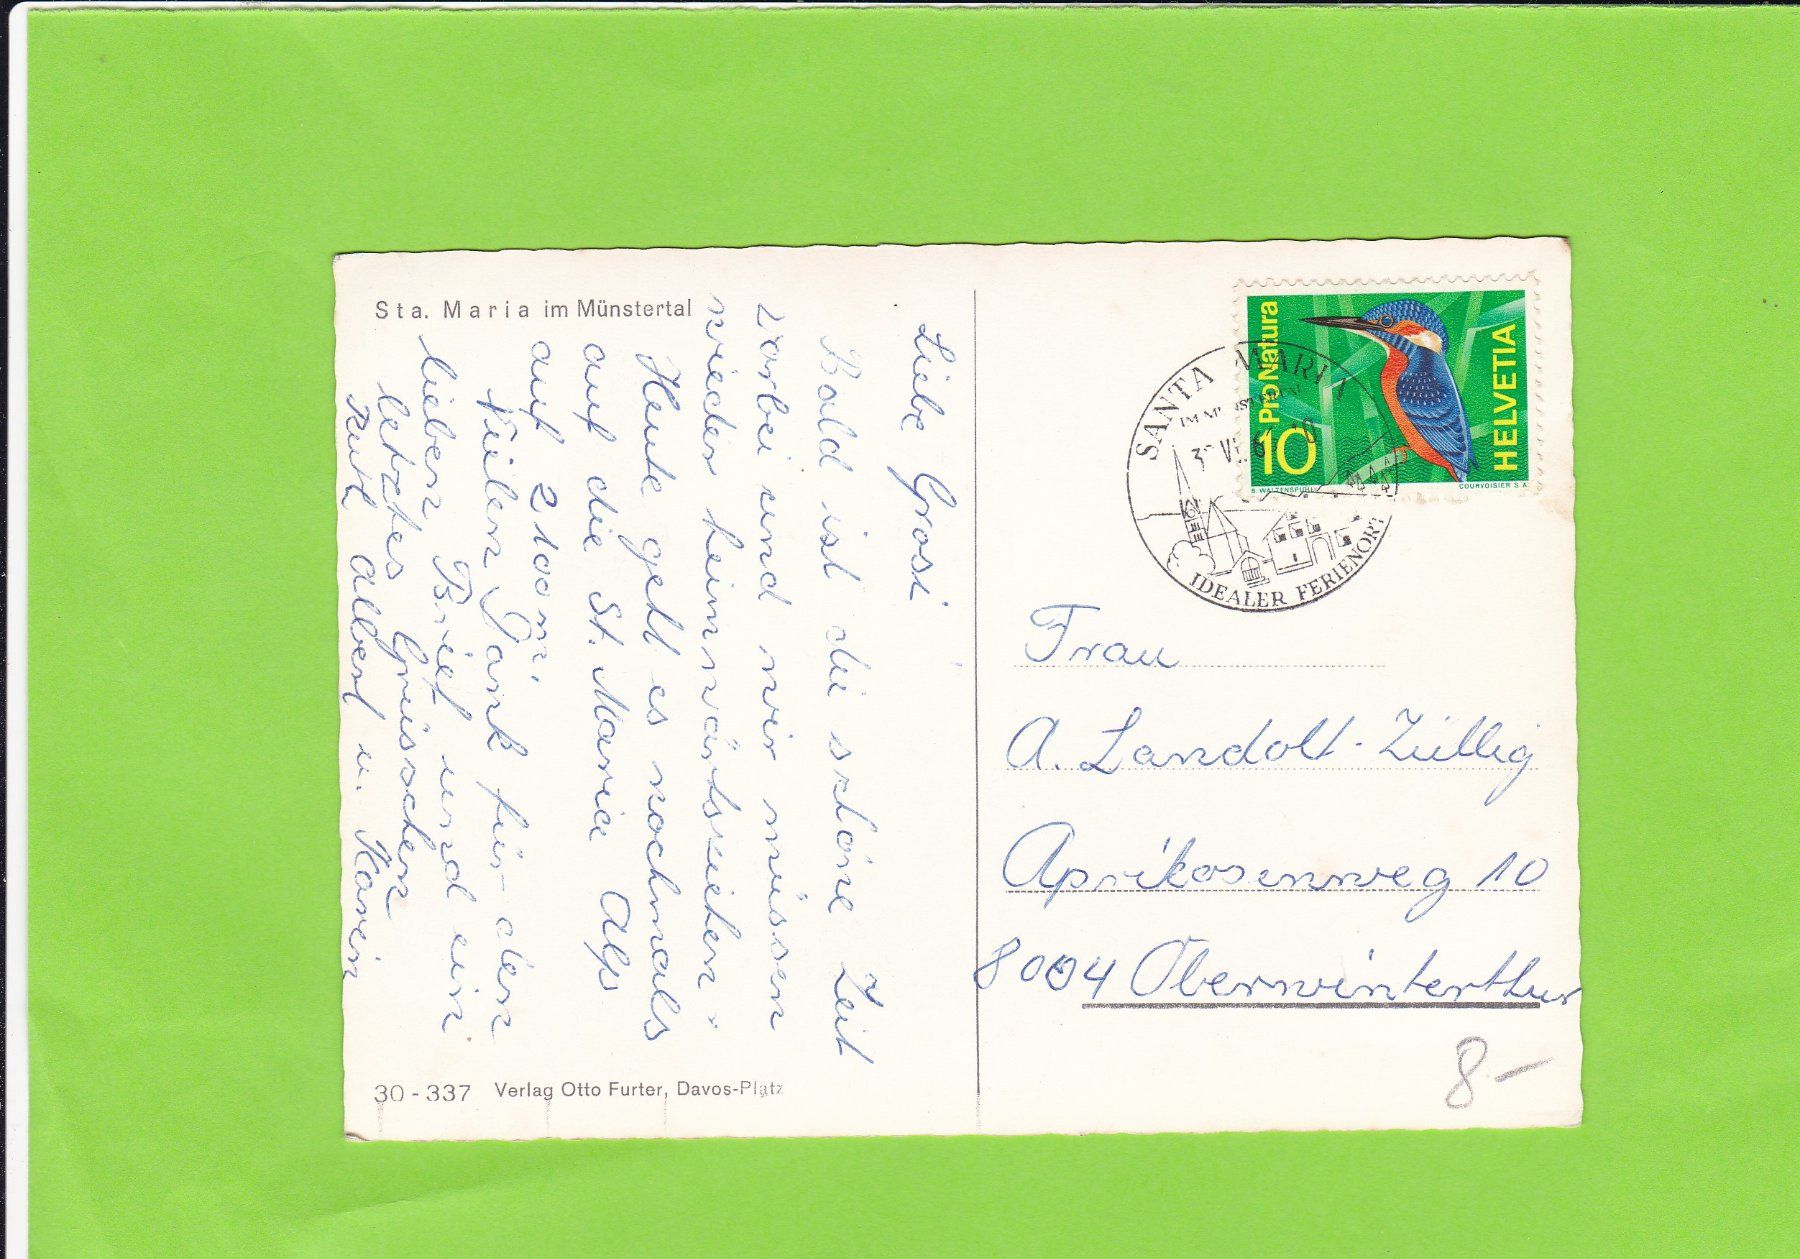 Sta. Maria im Münstertal
Liebe Grosi
Bald ist die schöne Zeit
vorbei und wir müssen
wieder heimwärtsziehen.
Heute geht es nochmals
auf die St. Maria Alp
auf 2100m.
Vielen Dank für den
lieben Brief und ein
letztes Grüsschen
Ruth Albert u. Karin
30-337 Verlag Otto Furter, Davos-Platz
Pro Natura
10
HELVETIA
B. WALTENSPÜHL
COURVOISIER S.A.
SANTA MARIA
IM
IDEALER FERIENORT
Frau
A. Landolt-Züllig
Aprikosenweg 10
8004 Oberwinterthur
8-